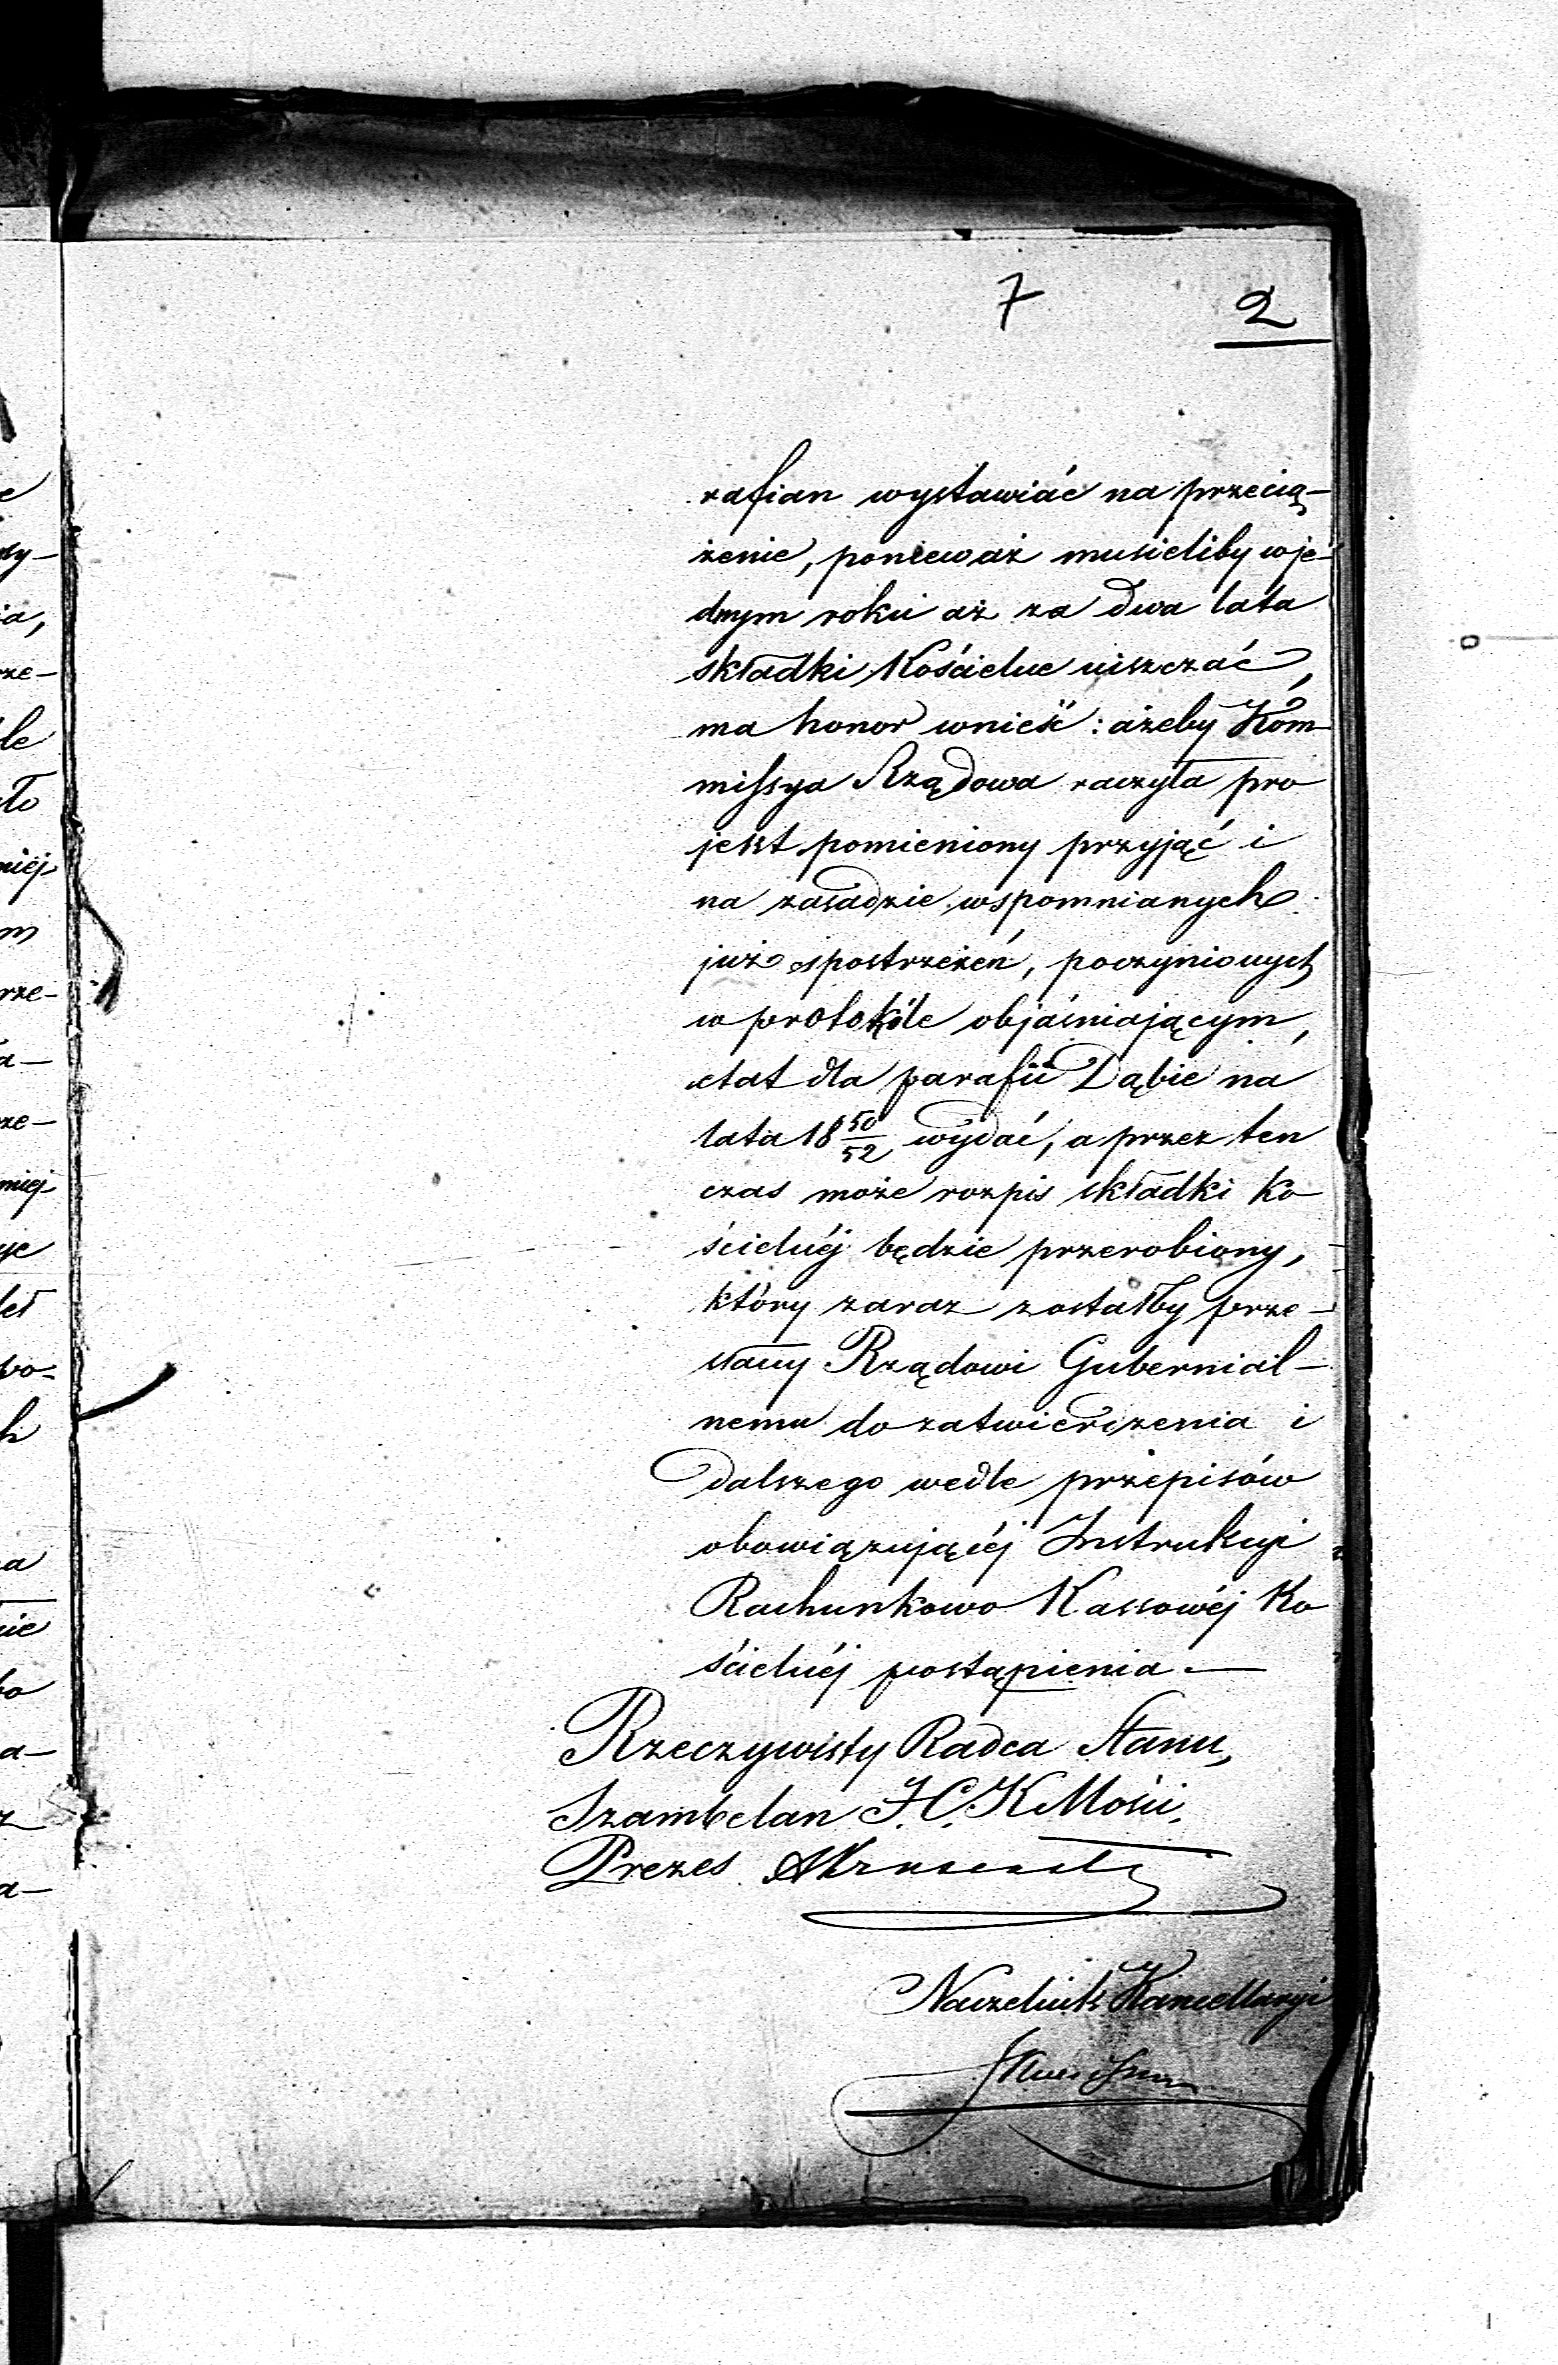 7 2
rafian wystawiać na przecią-
żenie, ponieważ musieliby w je-
dnym roku aż za dwa lata
składki Kościelne uiszczać,
ma honor wnieść: ażeby Kom-
missya Rządowa raczyła pro
jekt pomieniony przyjąć i
na zasadzie wspomnianych
już spostrzeżeń, poczynionych
w protokóle objaśniającym,
etat dla parafii Dąbie na
lata 18 50/52 wydać, a przez ten
czas może rozpis składki ko-
ścielnéj będzie przerobiony,
który zaraz zostałby prze-
słany Rządowi Gubernial-
nemu do zatwierdzenia i
dalszego wedle przepisów
obowiązującéj Instrukcyi
Rachunkowo Kassowéj Ko
ścielnéj postąpienia.—
Rzeczywisty Radca Stanu,
Szambelan J. C. K Mości.
Prezes
Naczelnik Kancellaryi